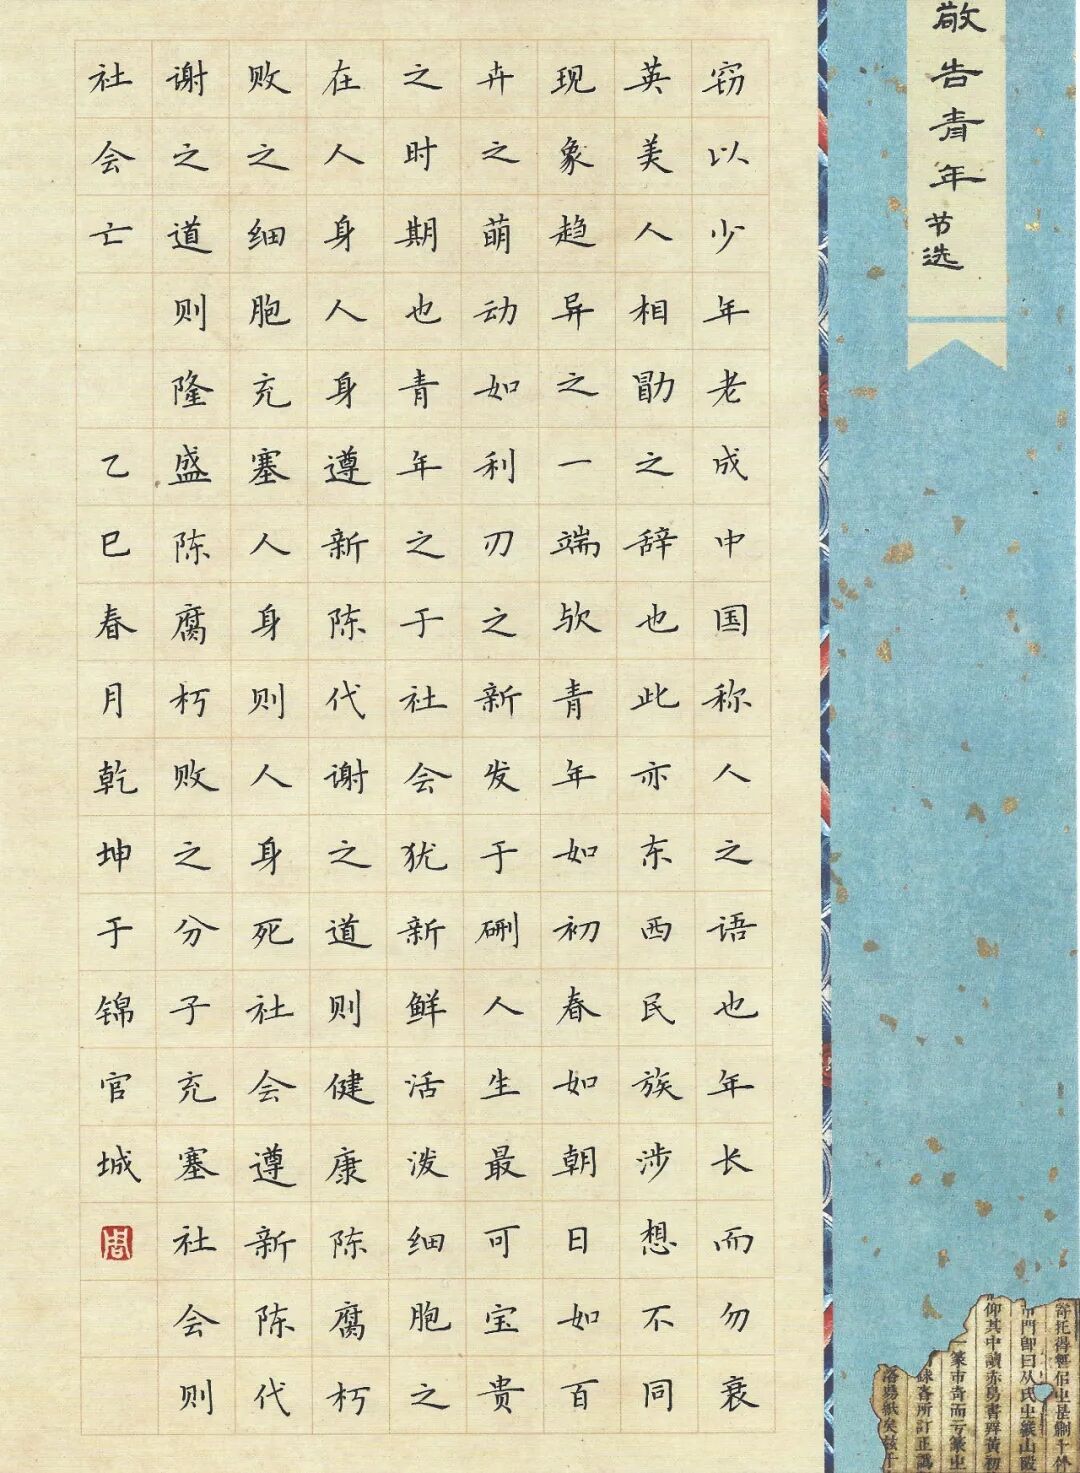 敬告青年
节选
窃以少年老成中国称人之语也年长而勿衰
英美人相勖之辞也此亦东西民族涉想不同
现象趋异之一端欤青年如初春如朝日如百
卉之萌动如利刃之新发于硎人生最可宝贵
之时期也青年之于社会犹新鲜活泼细胞之
在人身人身遵新陈代谢之道则健康陈腐朽
败之细胞充塞人身则人身死社会遵新陈代
谢之道则隆盛陈腐朽败之分子充塞社会则
社会亡 乙巳春月乾坤于锦官城
周